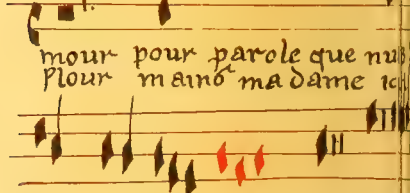 mour pour parole que nus
Plour mains ma dame ich